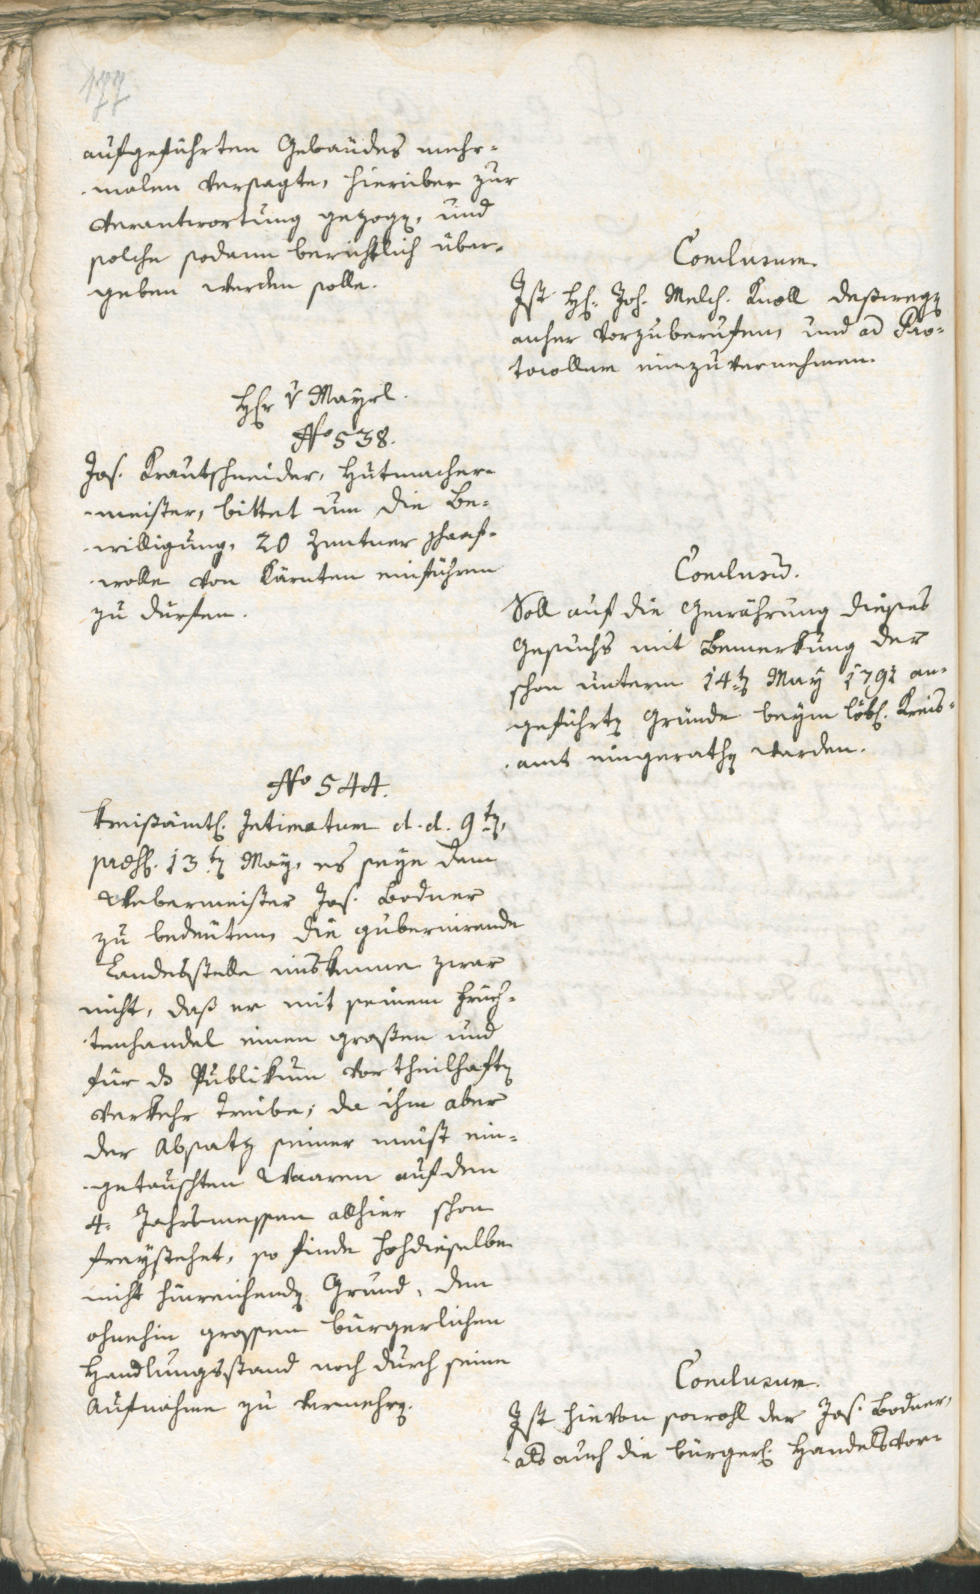 177
aufgeführten Gebäudes mehr-
malen versagte, hierüber zur
Verantwortung gezogen, und
solche sodann berichtlich über-
geben werden solle.
Conclusum.
Ist H: Joh. Melch. Knoll deßwegen
anher vorzuberufen, und ad Pro-
tocollum einzuvernehmen.
Hr v Mayrl.
No 538.
Jos. Krautschneider, Hutmacher-
meister, bittet um die Be-
willigung, 20 Zentner schaaf-
wolle von Kärnten einführen
zu dürfen.
Conclusũ.
Soll auf die Gewährung dieses
Gesuchs mit Bemerkung der
schon unterm 14ten May 1791 an-
geführten Gründe beym löbl. Kreis-
amt eingerathen werden.
No 544.
Kreisämtl. Intimatum d. d. 9ten,
13ten May, es seye dem
Webermeister Jos. Bodner
zu bedeuten, die gubernirende
Landesstelle miskenne zwar
nicht, daß er mit seinem Früch-
tenhandel einen großen und
für das Publikum vortheilhaften
Verkehr treibe; da ihm aber
der Absatz seiner meist ein-
getauschten Waaren auf den
4. Jahrsmessen allhier schon
freystehet, so finde hochdieselbe
nicht hinreichenden Grund, den
ohnehin grossen bürgerlichen
Handlungsstand noch durch seine
Aufnahme zu vermehren.
Conclusum.
Ist hievon sowohl der Jos. Bodner,
als auch die bürgerl. Handelsvor-